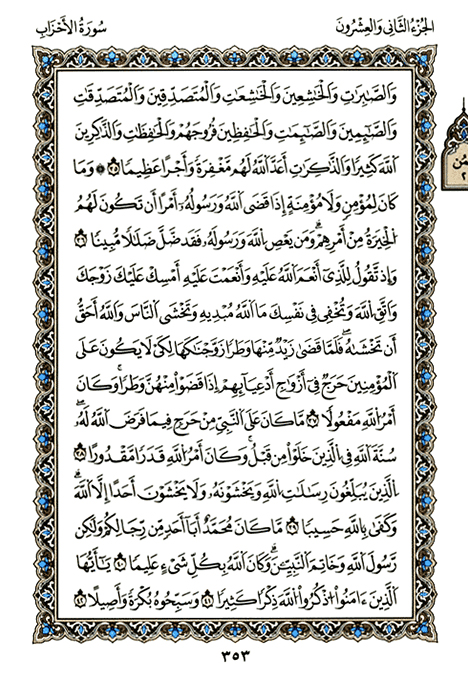 الجُزْءُ الثَّانِي وَالعِشْرُونَ
سُورَةُ الأَحْزَابِ
وَالصَّٰبِرَٰتِ وَالْخَٰشِعِينَ وَالْخَٰشِعَٰتِ وَالْمُتَصَدِّقِينَ وَالْمُتَصَدِّقَٰتِ
وَالصَّٰٓئِمِينَ وَالصَّٰٓئِمَٰتِ وَالْحَٰفِظِينَ فُرُوجَهُمْ وَالْحَٰفِظَٰتِ وَالذَّٰكِرِينَ
اللَّهَ كَثِيرًا وَالذَّٰكِرَٰتِ أَعَدَّ اللَّهُ لَهُم مَّغْفِرَةً وَأَجْرًا عَظِيمًا ٣٥ وَمَا
كَانَ لِمُؤْمِنٍ وَلَا مُؤْمِنَةٍ إِذَا قَضَى اللَّهُ وَرَسُولُهُۥٓ أَمْرًا أَن تَكُونَ لَهُمُ
الْخِيَرَةُ مِنْ أَمْرِهِمْ ۗ وَمَن يَعْصِ اللَّهَ وَرَسُولَهُۥ فَقَدْ ضَلَّ ضَلَٰلًا مُّبِينًا ٣٦
وَإِذْ تَقُولُ لِلَّذِىٓ أَنْعَمَ اللَّهُ عَلَيْهِ وَأَنْعَمْتَ عَلَيْهِ أَمْسِكْ عَلَيْكَ زَوْجَكَ
وَاتَّقِ اللَّهَ وَتُخْفِى فِى نَفْسِكَ مَا اللَّهُ مُبْدِيهِ وَتَخْشَى النَّاسَ وَاللَّهُ أَحَقُّ
أَن تَخْشَىٰهُ ۖ فَلَمَّا قَضَىٰ زَيْدٌ مِّنْهَا وَطَرًا زَوَّجْنَٰكَهَا لِكَىْ لَا يَكُونَ عَلَى
الْمُؤْمِنِينَ حَرَجٌ فِىٓ أَزْوَٰجِ أَدْعِيَآئِهِمْ إِذَا قَضَوْا۟ مِنْهُنَّ وَطَرًا ۚ وَكَانَ
أَمْرُ اللَّهِ مَفْعُولًا ٣٧ مَّا كَانَ عَلَى النَّبِىِّ مِنْ حَرَجٍ فِيمَا فَرَضَ اللَّهُ لَهُۥ ۖ
سُنَّةَ اللَّهِ فِى الَّذِينَ خَلَوْا۟ مِن قَبْلُ ۚ وَكَانَ أَمْرُ اللَّهِ قَدَرًا مَّقْدُورًا ٣٨
الَّذِينَ يُبَلِّغُونَ رِسَٰلَٰتِ اللَّهِ وَيَخْشَوْنَهُۥ وَلَا يَخْشَوْنَ أَحَدًا إِلَّا اللَّهَ ۗ
وَكَفَىٰ بِاللَّهِ حَسِيبًا ٣٩ مَّا كَانَ مُحَمَّدٌ أَبَآ أَحَدٍ مِّن رِّجَالِكُمْ وَلَٰكِن
رَّسُولَ اللَّهِ وَخَاتَمَ النَّبِيِّـۧنَ ۗ وَكَانَ اللَّهُ بِكُلِّ شَىْءٍ عَلِيمًا ٤٠ يَٰٓأَيُّهَا
الَّذِينَ ءَامَنُوا۟ اذْكُرُوا۟ اللَّهَ ذِكْرًا كَثِيرًا ٤١ وَسَبِّحُوهُ بُكْرَةً وَأَصِيلًا ٤٢
٣٥٣